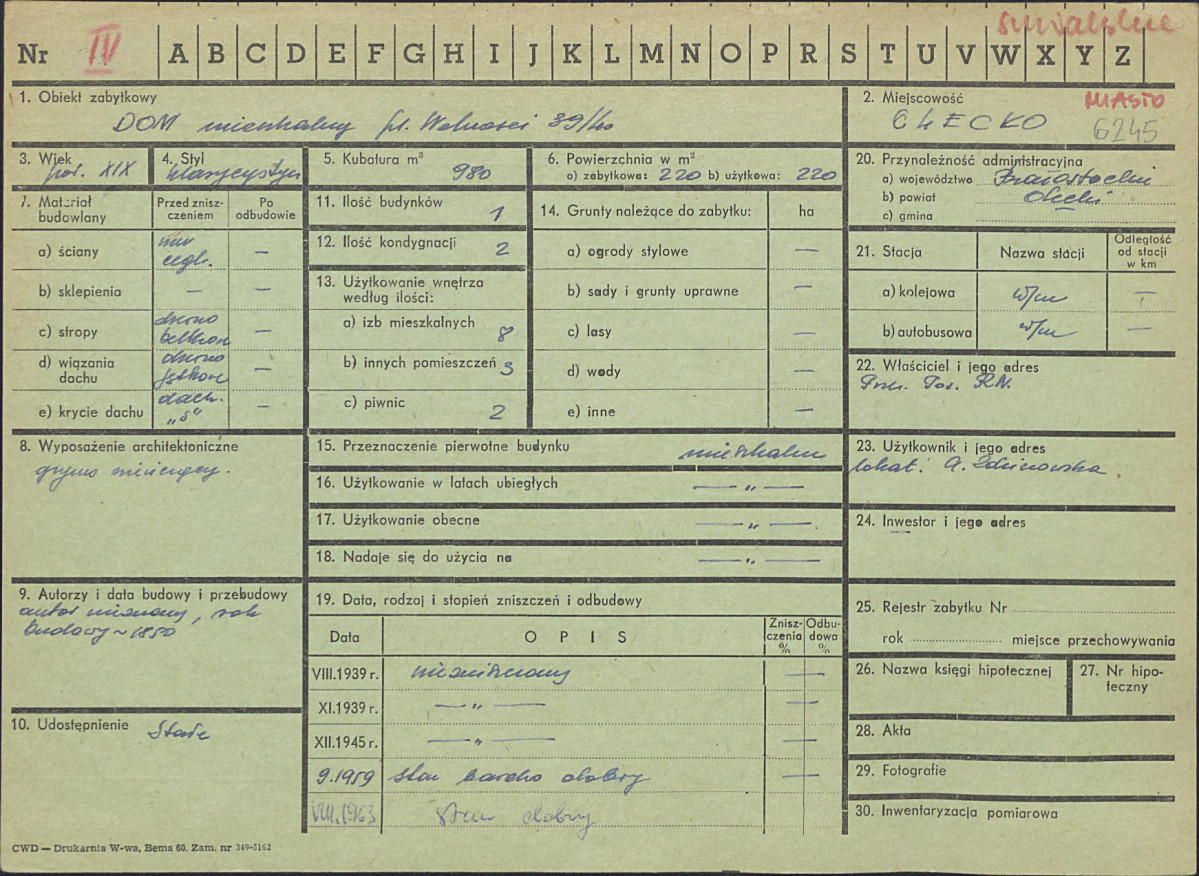 suwalskie
Nr IV A B C D E F G H I J K L M N O P R S T U V W X Y Z
1. Obiekt zabytkowy
DOM mieszkalny pl. Wolności 39/40
2. Miejscowość MIASTO
OLECKO 6245
3. Wiek
poł. XIX
4. Styl
klasycystyczn
5. Kubatura m³
980
6. Powierzchnia w m²
a) zabytkowa: 220 b) użytkowa: 220
20. Przynależność administracyjna
a) województwo Białostockie
b) powiat Olecki
c) gmina
7. Materiał budowlany
Przed zniszczeniem
Po odbudowie
a) ściany mur cegł. —
b) sklepienia — —
c) stropy drewno belkowe —
d) wiązania dachu drewno jętkowe —
e) krycie dachu dach. „S" —
11. Ilość budynków 1
12. Ilość kondygnacji 2
13. Użytkowanie wnętrza
według ilości:
a) izb mieszkalnych 8
b) innych pomieszczeń 3
c) piwnic 2
14. Grunty należące do zabytku: ha
a) ogrody stylowe —
b) sady i grunty uprawne —
c) lasy —
d) wody —
e) inne —
21. Stacja
Nazwa stacji
Odległość od stacji w km
a) kolejowa w/m —
b) autobusowa w/m —
22. Właściciel i jego adres
Prez. Pow. R.N.
8. Wyposażenie architektoniczne
gzyms wieńczący.
15. Przeznaczenie pierwotne budynku mieszkalne
16. Użytkowanie w latach ubiegłych — „ —
17. Użytkowanie obecne — „ —
18. Nadaje się do użycia na — „ —
23. Użytkownik i jego adres
lokat. A.
24. Inwestor i jego adres
—
9. Autorzy i data budowy i przebudowy
autor nieznany, rok
budowy ~1850
19. Data, rodzaj i stopień zniszczeń i odbudowy
Data
OPIS
Zniszczenia %
Odbudowa %
VIII.1939 r. niezniszczony —
XI.1939 r. — „ — —
XII.1945 r. — „ — —
9.1959 stan bardzo dobry —
VIII.1963 stan dobry
25. Rejestr zabytku Nr
rok miejsce przechowywania
26. Nazwa księgi hipotecznej
27. Nr hipoteczny
10. Udostępnienie Stałe
28. Akta
29. Fotografie
30. Inwentaryzacja pomiarowa
CWD — Drukarnia W-wa, Bema 60. Zam. nr 349-5162